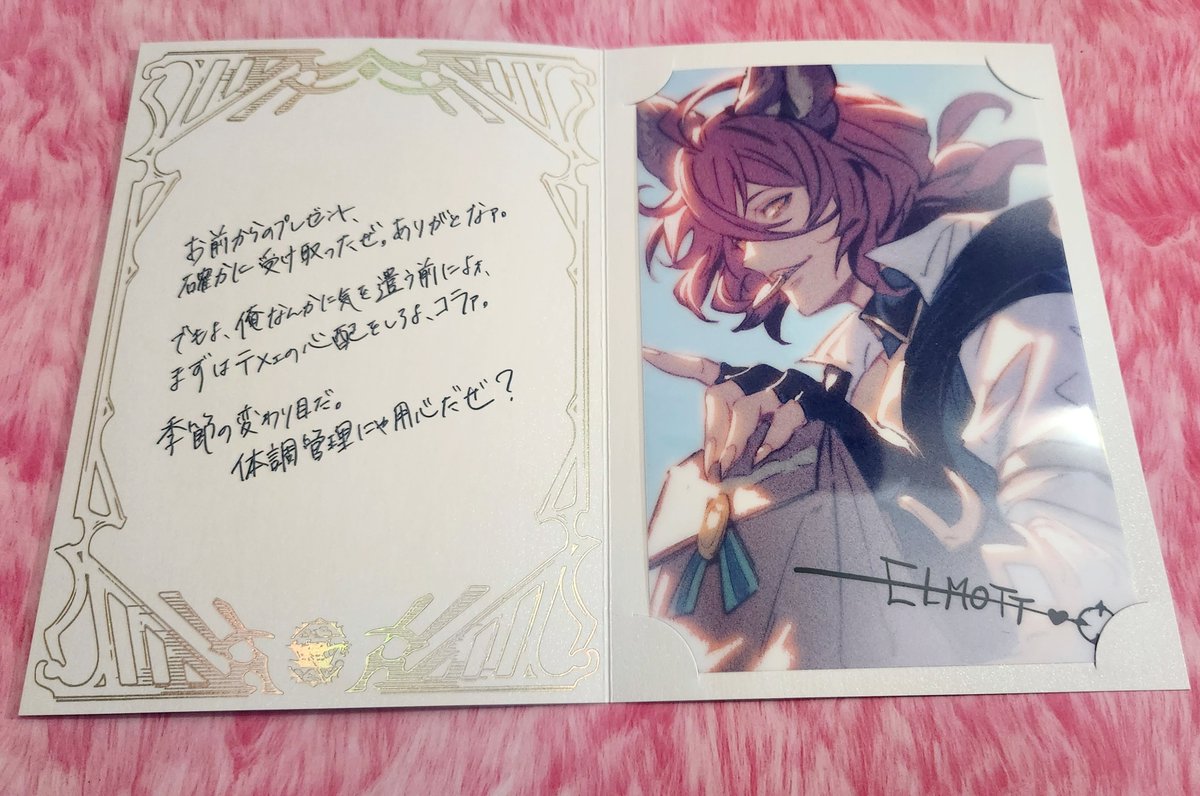 お前からのプレゼント、
確かに受け取ったぜ。ありがとなァ。
でもよ、俺なんかに気を遣う前によォ、
まずはテメェの心配をしろよ、コラァ。
季節の変わり目だ。
体調管理にゃ用心だぜ？
ELMOTT